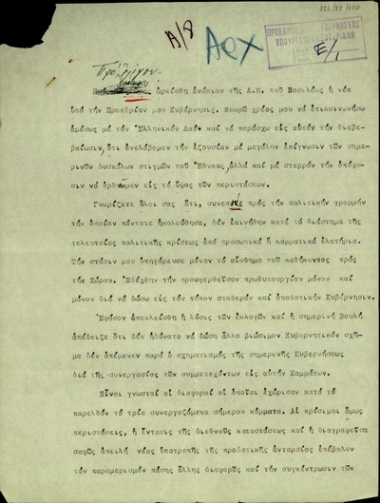 Α/8
Αρχ
Ε/1
Πρὸ ὀλίγου
ὡρκίσθη ἐνώπιον τῆς Α.Μ. τοῦ Βασιλέως ἡ νέα
ὑπό τήν Προεδρίαν μου Κυβέρνησις. Θεωρῶ χρέος μου νά ἐπικοινωνήσω
ἀμέσως μέ τόν Ἑλληνικόν Λαόν καί νά παράσχω εἰς αὐτόν τήν διαβε-
βαίωσιν, ὅτι ἀνελάβομεν τήν ἐξουσίαν μέ μεγάλην ἐπίγνωσιν τῶν ση-
μερινῶν δυσκόλων στιγμῶν τοῦ Ἔθνους, ἀλλά καί μέ στερράν τήν ἀπόφα-
σιν νά ἀρθῶμεν εἰς τό ὕψος τῶν περιστάσεων.
Γνωρίζετε ὅλοι σας ὅτι, συνεπής πρός τήν πολιτικήν γραμμήν
τήν ὁποίαν πάντοτε ἠκολούθησα, δέν ἐκινήθην κατά τό διάστημα τῆς
τελευταίας πολιτικῆς κρίσεως ἀπό προσωπικά ἤ κομματικά ἐλατήρια.
Τήν στάσιν μου ὑπηγόρευσε μόνον τό αἴσθημα τοῦ καθήκοντος πρός
τήν Χώραν. Ἐδέχθην τήν προσφερθεῖσαν πρωθυπουργίαν μόνον καί
μόνον διά νά δώσω εἰς τόν τόπον σταθεράν καί ἀποδοτικήν Κυβέρνησιν.
Ἐφόσον ἀπεκλείσθη ἡ λύσις τῶν ἐκλογῶν καί ἡ σημερινή Βουλή
ἀπέδειξε ὅτι δέν ἠδύνατο νά δώσῃ ἄλλο βιώσιμον Κυβερνητικόν σχῆ-
μα δέν ἀπέμενεν παρά ὁ σχηματισμός τῆς σημερινῆς Κυβερνήσεως
διά τῆς συνεργασίας τῶν συμμετεχόντων εἰς αὐτήν Κομμάτων.
Εἶναι γνωσταί αἱ διαφοραί αἱ ὁποῖαι ἐχώρισαν κατά τό
παρελθόν τά τρία συνεργαζόμενα σήμερον κόμματα. Αἱ κρίσιμοι ὅμως
περιστάσεις, ἡ ἔντασις τῆς διεθνοῦς καταστάσεως καί ἡ διαγραφεῖσα
σαφῶς ἀπειλή νέας ὑποτροπῆς τῆς προδοτικῆς ἀνταρσίας ἐπέβαλον
τόν παραμερισμόν πάσης ἄλλης διαφορᾶς καί τήν συγκέντρωσιν τῶν